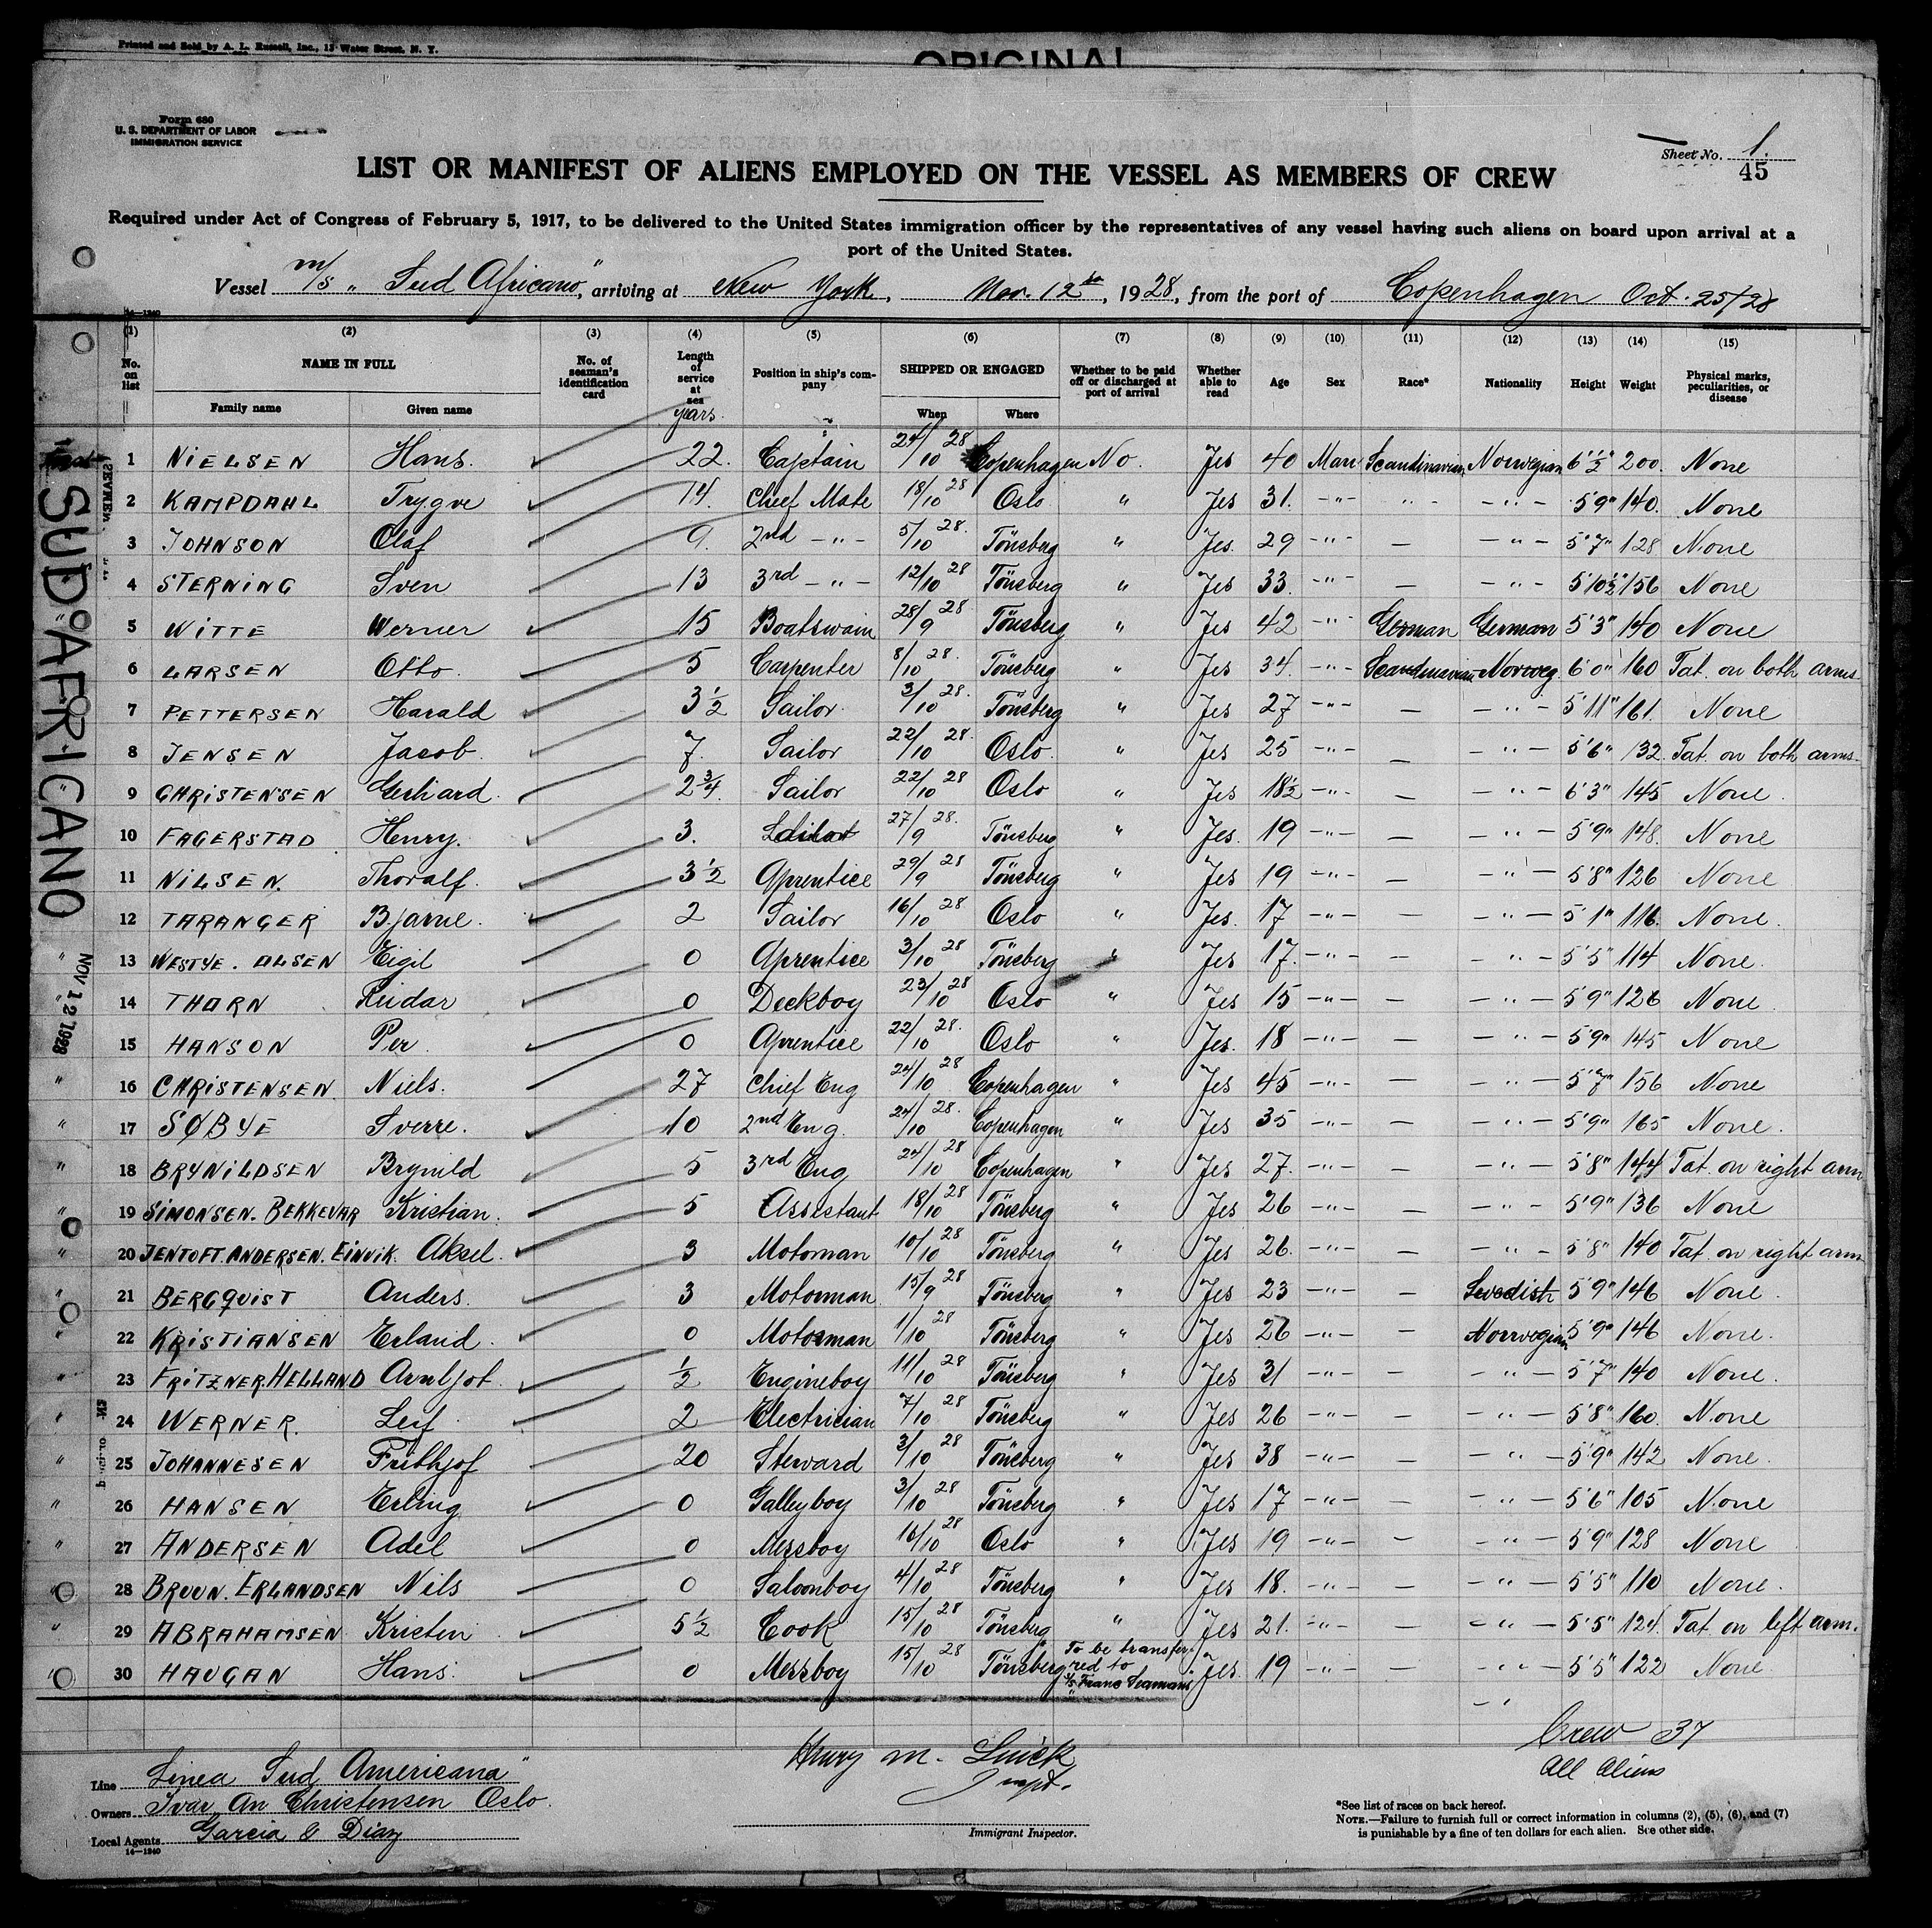 Printed and Sold by A. L. Russell, Inc., 13 Water Street, N. Y.
ORIGINAL
Form 680
U. S. DEPARTMENT OF LABOR
IMMIGRATION SERVICE
Sheet No. 1.
45
LIST OR MANIFEST OF ALIENS EMPLOYED ON THE VESSEL AS MEMBERS OF CREW
Required under Act of Congress of February 5, 1917, to be delivered to the United States immigration officer by the representatives of any vessel having such aliens on board upon arrival at a
port of the United States.
Vessel m/s "Sud Africano", arriving at New York, Nov. 12th, 1928, from the port of Copenhagen Oct. 25/28
14—1240
(1) (2) (3) (4) (5) (6) (7) (8) (9) (10) (11) (12) (13) (14) (15)
No. on list NAME IN FULL Family name Given name No. of seaman's identification card Length of service at sea years. Position in ship's company SHIPPED OR ENGAGED When Where Whether to be paid off or discharged at port of arrival Whether able to read Age Sex Race* Nationality Height Weight Physical marks, peculiarities, or disease
1 NIELSEN Hans. 22. Captain 24/10 28 Copenhagen No. Jes 40 Man Scandinavian Norwegian 6'½" 200. None
2 KAMPDAHL Trygve 14. Chief Mate 18/10 28 Oslo " Jes 31. -"- "- -"- 5'9" 140. None
3 JOHNSON Olaf 9. 2nd -"- 5/10 28. Tönsberg " Jes. 29 -"- — -"- 5'7" 128 None
4 STERNING Sven 13 3rd -"- 12/10 28 Tönsberg " Jes 33. -"- — -"- 5'10½" 156 None
5 WITTE Werner 15 Boatswain 28/9 28 Tönsberg " Jes 42 -"- German German 5'3" 140 None
6 LARSEN Otto. 5 Carpenter 8/10 28. Tönsberg " Jes 34. -"- Scandinavian Norweg. 6'0" 160 Tat. on both arms
7 PETTERSEN Harald 3½ Sailor. 3/10 28. Tönsberg " Jes 27 -"- — -"- 5'11" 161. None
8 JENSEN Jacob. 7. Sailor 22/10 28. Oslo. " Jes 25 -"- — -"- 5'6" 132. Tat. on both arms.
9 CHRISTENSEN Gerhard. 2¾. Sailor 22/10 28 Oslo " Jes 18½ -"- — -"- 6'3" 145 None.
10 FAGERSTAD Henry. 3. Sailor 27/9 28. Tönsberg " Jes. 19 -"- — -"- 5'9" 148. None
11 NILSEN. Thoralf. 3½ Aprentice 29/9 28 Tönsberg " Jes 19 -"- — -"- 5'8" 126 None
12 TARANGER Bjarne. 2 Sailor 16/10 28 Oslo " Jes. 17 -"- — -"- 5'1" 116. None.
13 WESTYE. OLSEN Eigil 0 Aprentice 3/10 28 Tönsberg " Jes 17. -"- — -"- 5'5" 114 None.
14 THORN Reidar 0 Deckboy 23/10 28 Oslo " Jes 15 -"- — -"- 5'9" 126 None.
15 HANSON Per. 0 Aprentice 22/10 28. Oslo " Jes. 18 -"- — -"- 5'9" 145 None
16 CHRISTENSEN Niels. 27 Chief Eng 24/10 28 Copenhagen " Jes 45 -"- — -"- 5'7" 156 None
17 SØBYE Sverre. 10 2nd Eng. 24/10 28. Copenhagen " Jes 35 -"- — -"- 5'9" 165 None.
18 BRYNILDSEN Brynild 5 3rd Eng 24/10 28 Copenhagen " Jes 27. -"- — -"- 5'8" 144 Tat. on right arm
19 SIMONSEN. BEKKEVAR Kristian. 5 Assistant 18/10 28 Tönsberg " Jes 26 -"- — -"- 5'9" 136 None
20 JENTOFT. ANDERSEN. EINVIK. Aksel. 3 Motoman 10/10 28 Tönsberg " Jes 26. -"- — -"- 5'8" 140 Tat. on right arm
21 BERGQUIST Anders. 3 Motorman 15/9 28 Tönsberg " Jes 23 -"- — Swedish 5'9" 146 None.
22 KRISTIANSEN Erland. 0 Motorman 1/10 28 Tönsberg " Jes 26 -"- — Norwegian 5'9" 146 None.
23 FRITZNER. HELLAND Arnljot ½ Engineboy 11/10 28 Tönsberg " Jes 31 -"- — -"- 5'7" 140 None.
24 WERNER. Leif. 2 Electrician 7/10 28 Tönsberg " Jes 26 -"- — -"- 5'8" 160. None
25 JOHANNESEN Frithjof 20 Steward 3/10 28 Tönsberg " Jes 38 -"- — -"- 5'9" 142 None.
26 HANSEN Erling 0 Galleyboy 3/10 28 Tönsberg " Jes 17 -"- — -"- 5'6" 105 None
27 ANDERSEN Adel 0 Messboy 16/10 28 Oslo " Jes 19 -"- — -"- 5'9" 128 None
28 BRUUN. ERLANDSEN Nils 0 Saloonboy 4/10 28 Tönsberg " Jes 18. -"- — -"- 5'5" 110 None.
29 ABRAHAMSEN Kristen 5½ Cook 15/10 28 Tönsberg " Jes 21. -"- — -"- 5'5" 124. Tat. on left arm.
30 HAUGAN Hans. 0 Messboy 15/10 28 Tönsberg To be transferred to Jes. 19 -"- — -"- 5'5" 122 None
SUD AFRICANO
NOV 12 1928
SEAMEN
Henry M.
Inspt.
Immigrant Inspector.
Crew 37
All Aliens
Line Linea Sud Americana"
Owners Ivar An Christensen Oslo.
Local Agents Garcia & Diaz
14—1240
*See list of races on back hereof.
NOTE.—Failure to furnish full or correct information in columns (2), (5), (6), and (7)
is punishable by a fine of ten dollars for each alien. See other side.